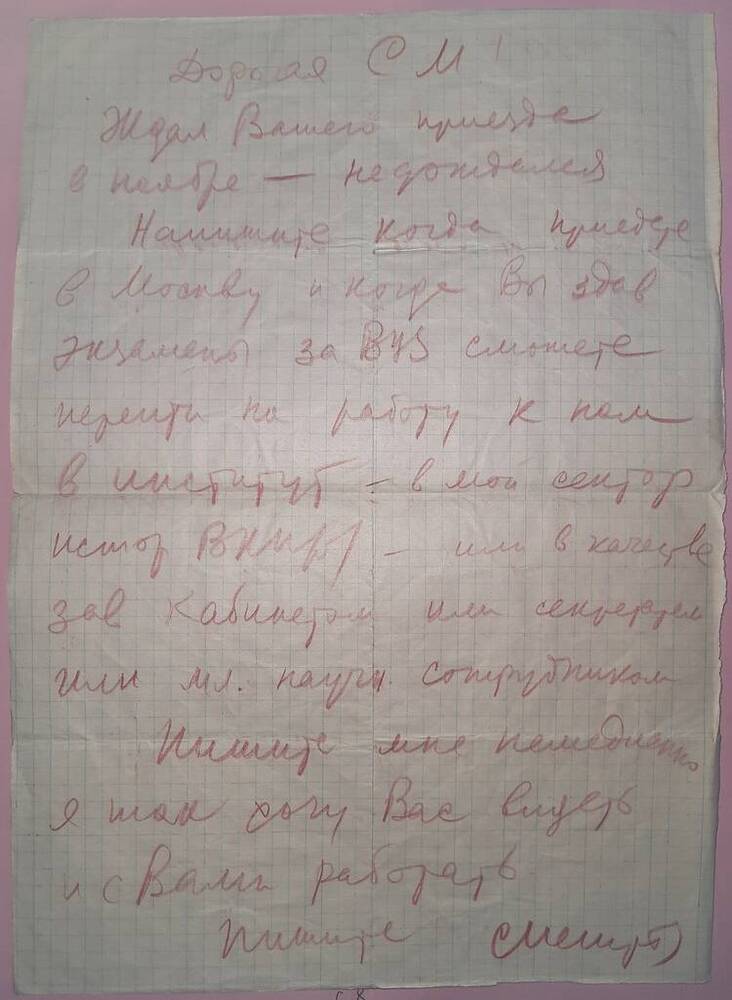 Дорогая С М!
Ждал Вашего приезда
в ноябре — недождался
Напишите когда приедете
в Москву и когда Вы здав
экзамены за ВУЗ сможете
перейти на работу к нам
в институт - в мой сектор
истор - или в качестве
зав Кабинетом или секретарем
или мл. научн. сотрудником
Пишите мне немедленно
я так хочу Вас видеть
и с Вами работать
Пишите